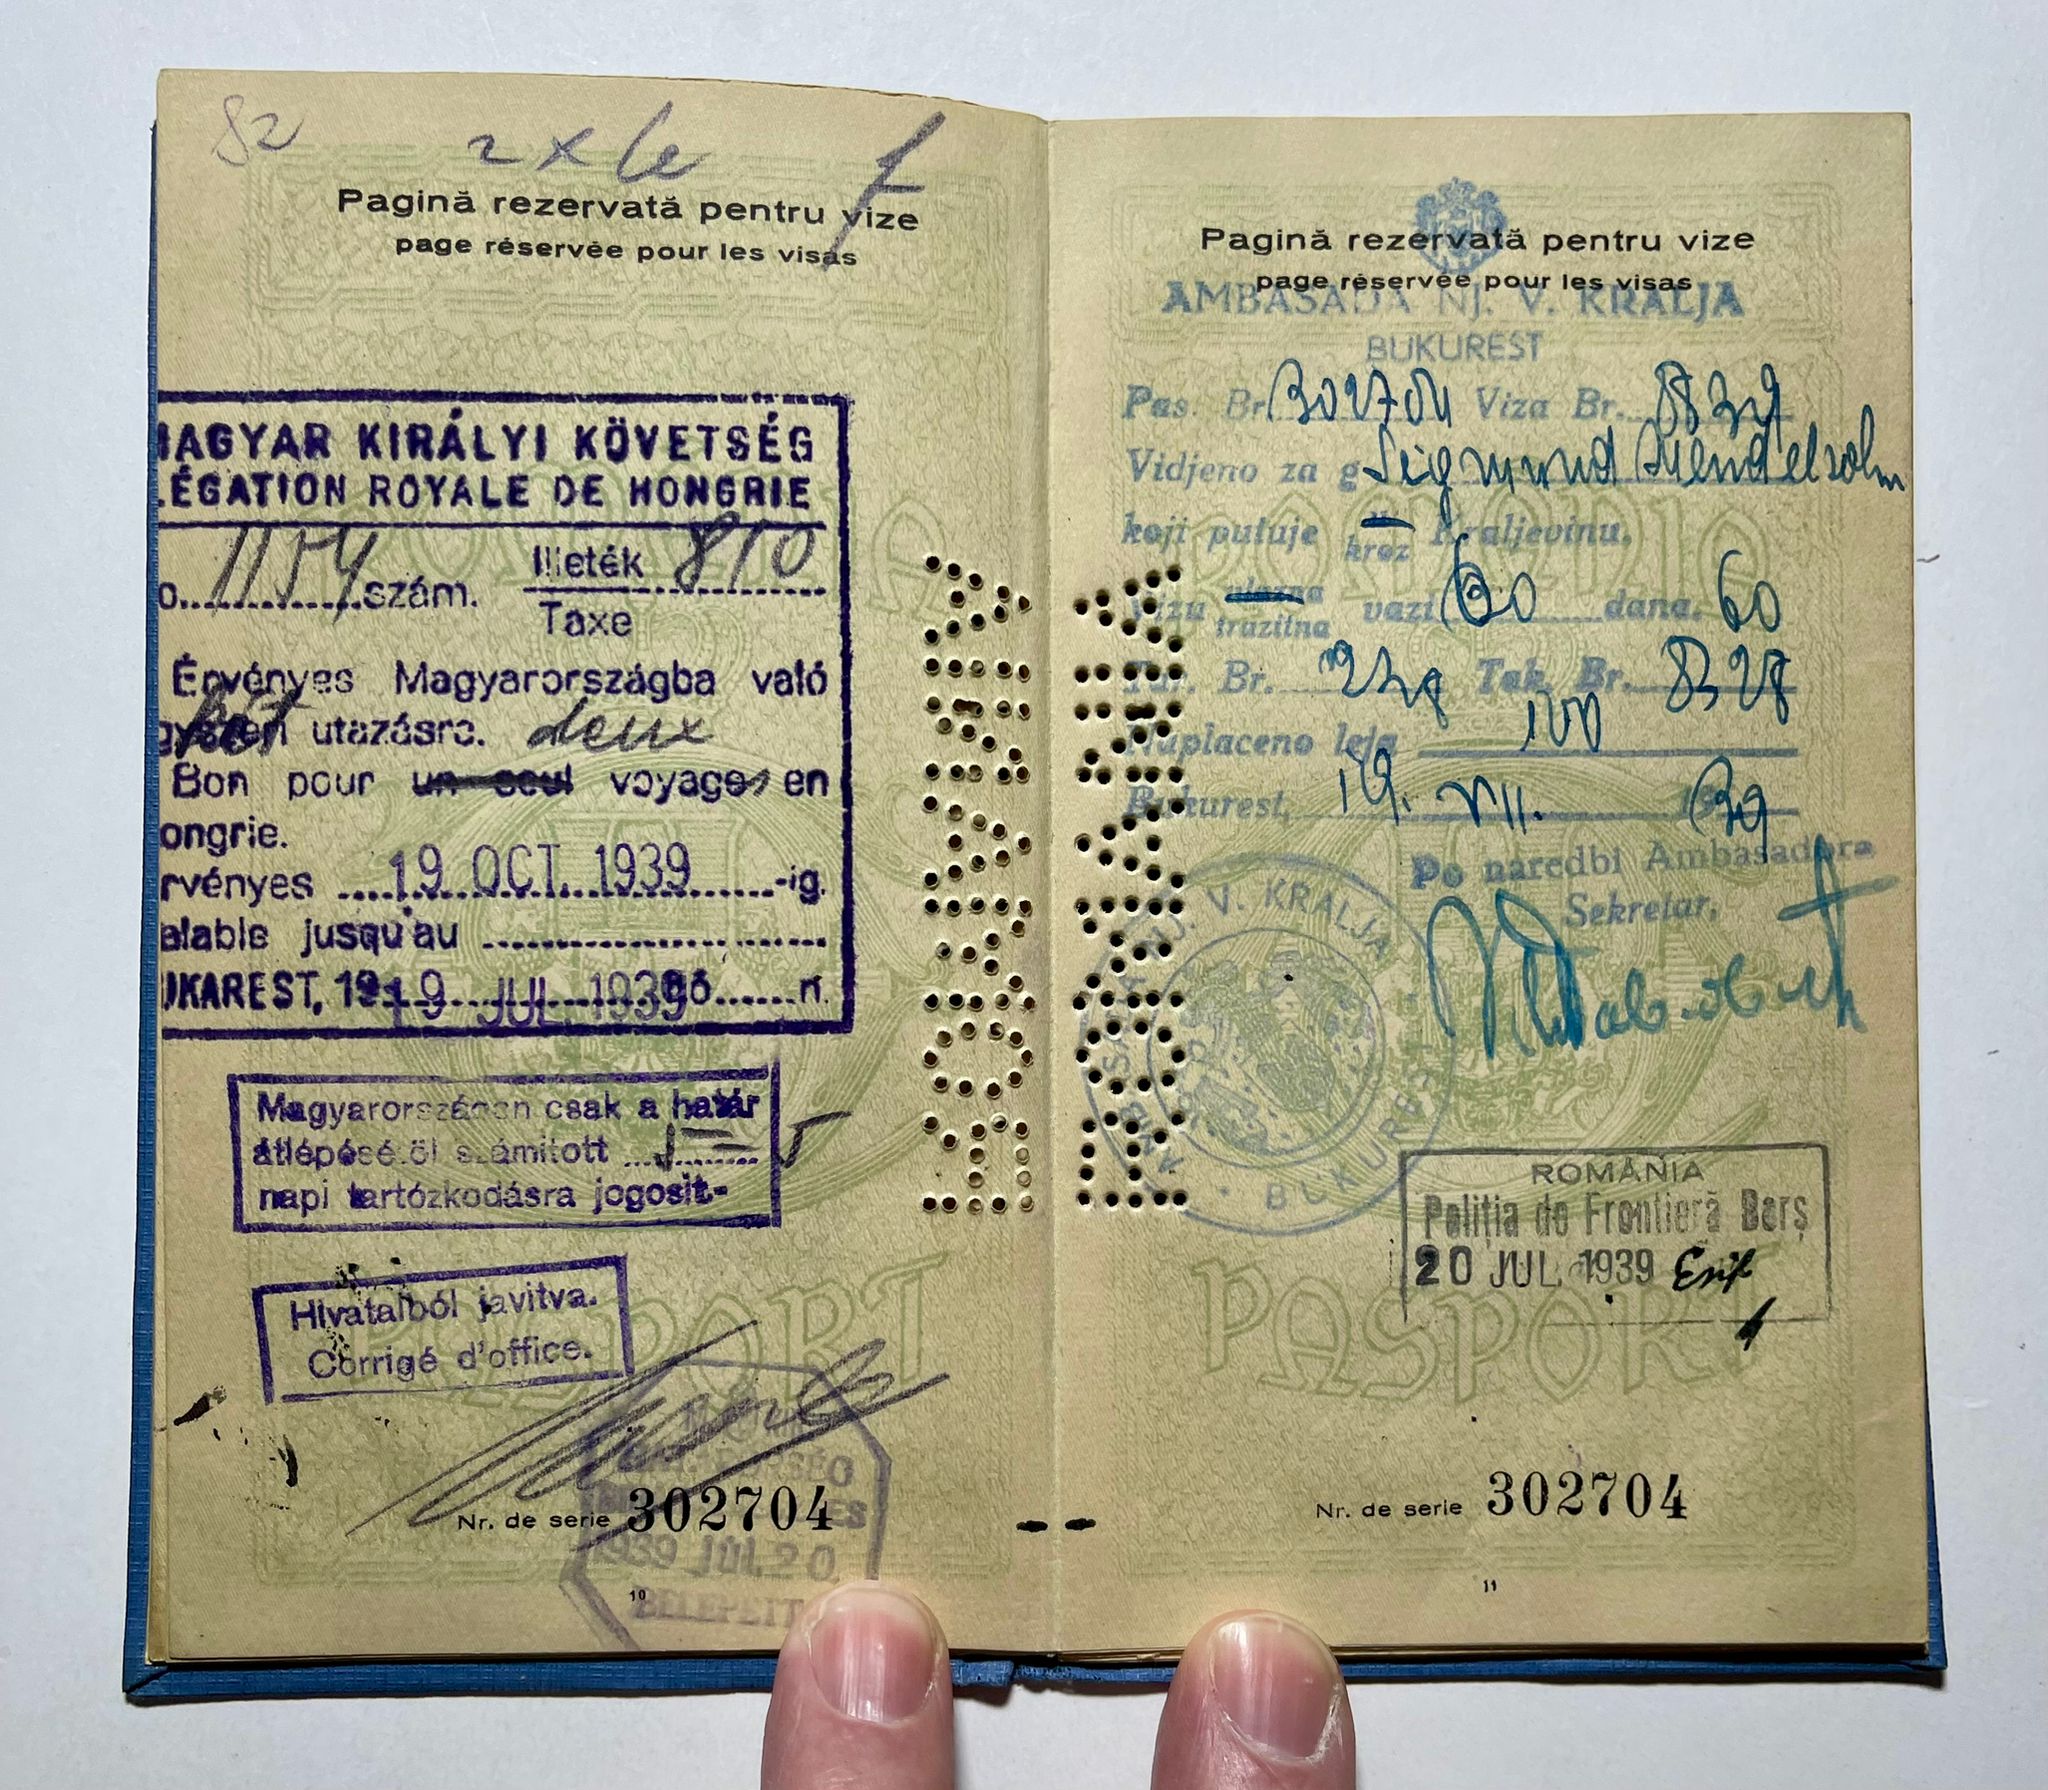 82
2 x
Pagină rezervată pentru vize
page réservée pour les visas
MAGYAR KIRÁLYI KÖVETSÉG
LÉGATION ROYALE DE HONGRIE
1154 szám. Illeték 810
Taxe
Érvényes Magyarországba való
két utazásra. deux
Bon pour un seul voyages en
ongrie.
rvényes 19 OCT. 1939 -ig.
alable jusqu'au
UKAREST, 19 19 JUL. 1939 n.
Magyarországon csak a határ
átlépésétől számított
napi tartózkodásra jogosit-
Hivatalból javitva.
Corrigé d'office.
Nr. de serie 302704
1939 JÚL 20
BELÉPETT
10
ROMANIA
PASPORT
Pagină rezervată pentru vize
page réservée pour les visas
AMBASADA NJ. V. KRALJA
BUKUREST
Pas. Br. 302704 Viza Br. 8329
Vidjeno za g Seigmund Mendelsohn
koji putuje kroz Kraljevinu.
Vizu ulazna tranzitna vazi 60 dana. 60
Tar. Br. Tak. Br. 8328
Naplaceno leja 100
Bukurest, 19. VII. 1939
Po naredbi Ambasadora
Sekretar,
AMBASADA NJ. V. KRALJA
BUKUREST
ROMÂNIA
Poliția de Frontieră Borș
20 JUL. 1939 Esit
ROMANIA
PASPORT
Nr. de serie 302704
11